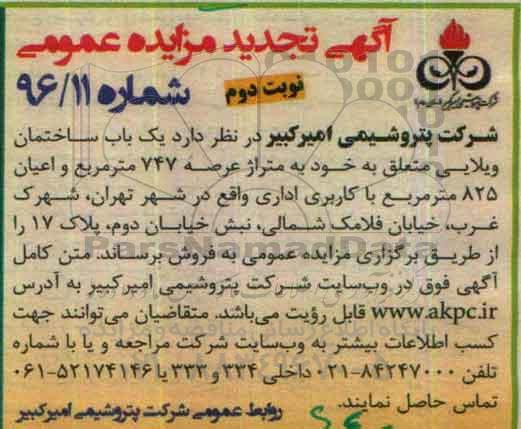 آگهی تجدید مزایده عمومی
شماره ۹۶/۱۱
نوبت دوم
شرکت پتروشیمی امیرکبیر در نظر دارد یک باب ساختمان
ویلایی متعلق به خود به متراژ عرصه ۷۴۷ مترمربع و اعیان
۸۲۵ مترمربع با کاربری اداری واقع در شهر تهران، شهرک
غرب، خیابان فلامک شمالی، نبش خیابان دوم، پلاک ۱۷ را
از طریق برگزاری مزایده عمومی به فروش برساند. متن کامل
آگهی فوق در وب‌سایت شرکت پتروشیمی امیرکبیر به آدرس
www.akpc.ir قابل رؤیت می‌باشد. متقاضیان می‌توانند جهت
کسب اطلاعات بیشتر به وب‌سایت شرکت مراجعه و یا با شماره
تلفن ۸۴۲۴۷۰۰۰-۰۲۱ داخلی ۳۳۴ و ۳۳۳ یا ۵۲۱۷۴۱۴۶-۰۶۱
تماس حاصل نمایند.
روابط عمومی شرکت پتروشیمی امیرکبیر
ParsNamadData